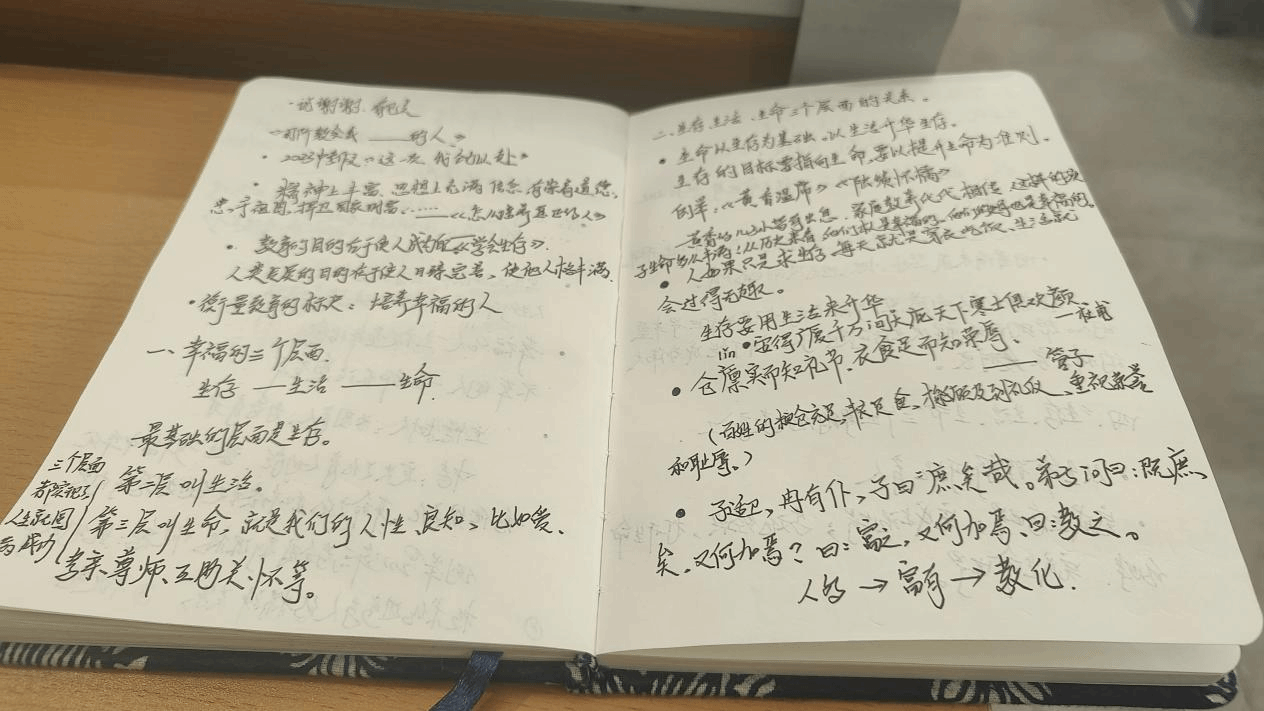 ·说谢谢、
的人。》
·2023中
·精神上丰富、思想上充满信念、有崇高道德、
忠于祖国、捍卫国家利益……——《怎么培养真正的人》
·教育的目的在于使人成为他《学会生存》.
人类发展的目的在于使人日臻完善,使他人格丰满
·衡量教育的标尺：培养幸福的人
一、幸福的三个层面.
生存——生活——生命.
最基础的层面是生存。
三个层面
都实现了
人生就圆
第二层叫生活。
第三层叫生命,就是我们的人性、良知、比如爱、
孝亲、尊师、互助关怀等。
二、生存、生活、生命三个层面的关系。
·生命以生存为基础。以生活升华生存。
生存的目标要指向生命,要以提升生命为准则。
例举:《黄香温席》《陆绩怀橘》
家庭教育代代相传 这样的孩
·人如果只是求生存,每天就是穿衣吃饭、生活就
会过得无趣。
生存要用生活来升华
lín
·安得广厦千万间大庇天下寒士俱欢颜
——杜甫
·仓廪实而知礼节、衣食足而知荣辱。
——管子
(百姓的粮仓充足,丰衣足食,才能顾及到礼仪、重视荣誉
和耻辱。)
·子适卫,冉有仆,子曰:庶矣哉。弟子问曰:既庶
矣,又何加焉?曰:富之,又何加焉、曰:教之。
→富有→教化.